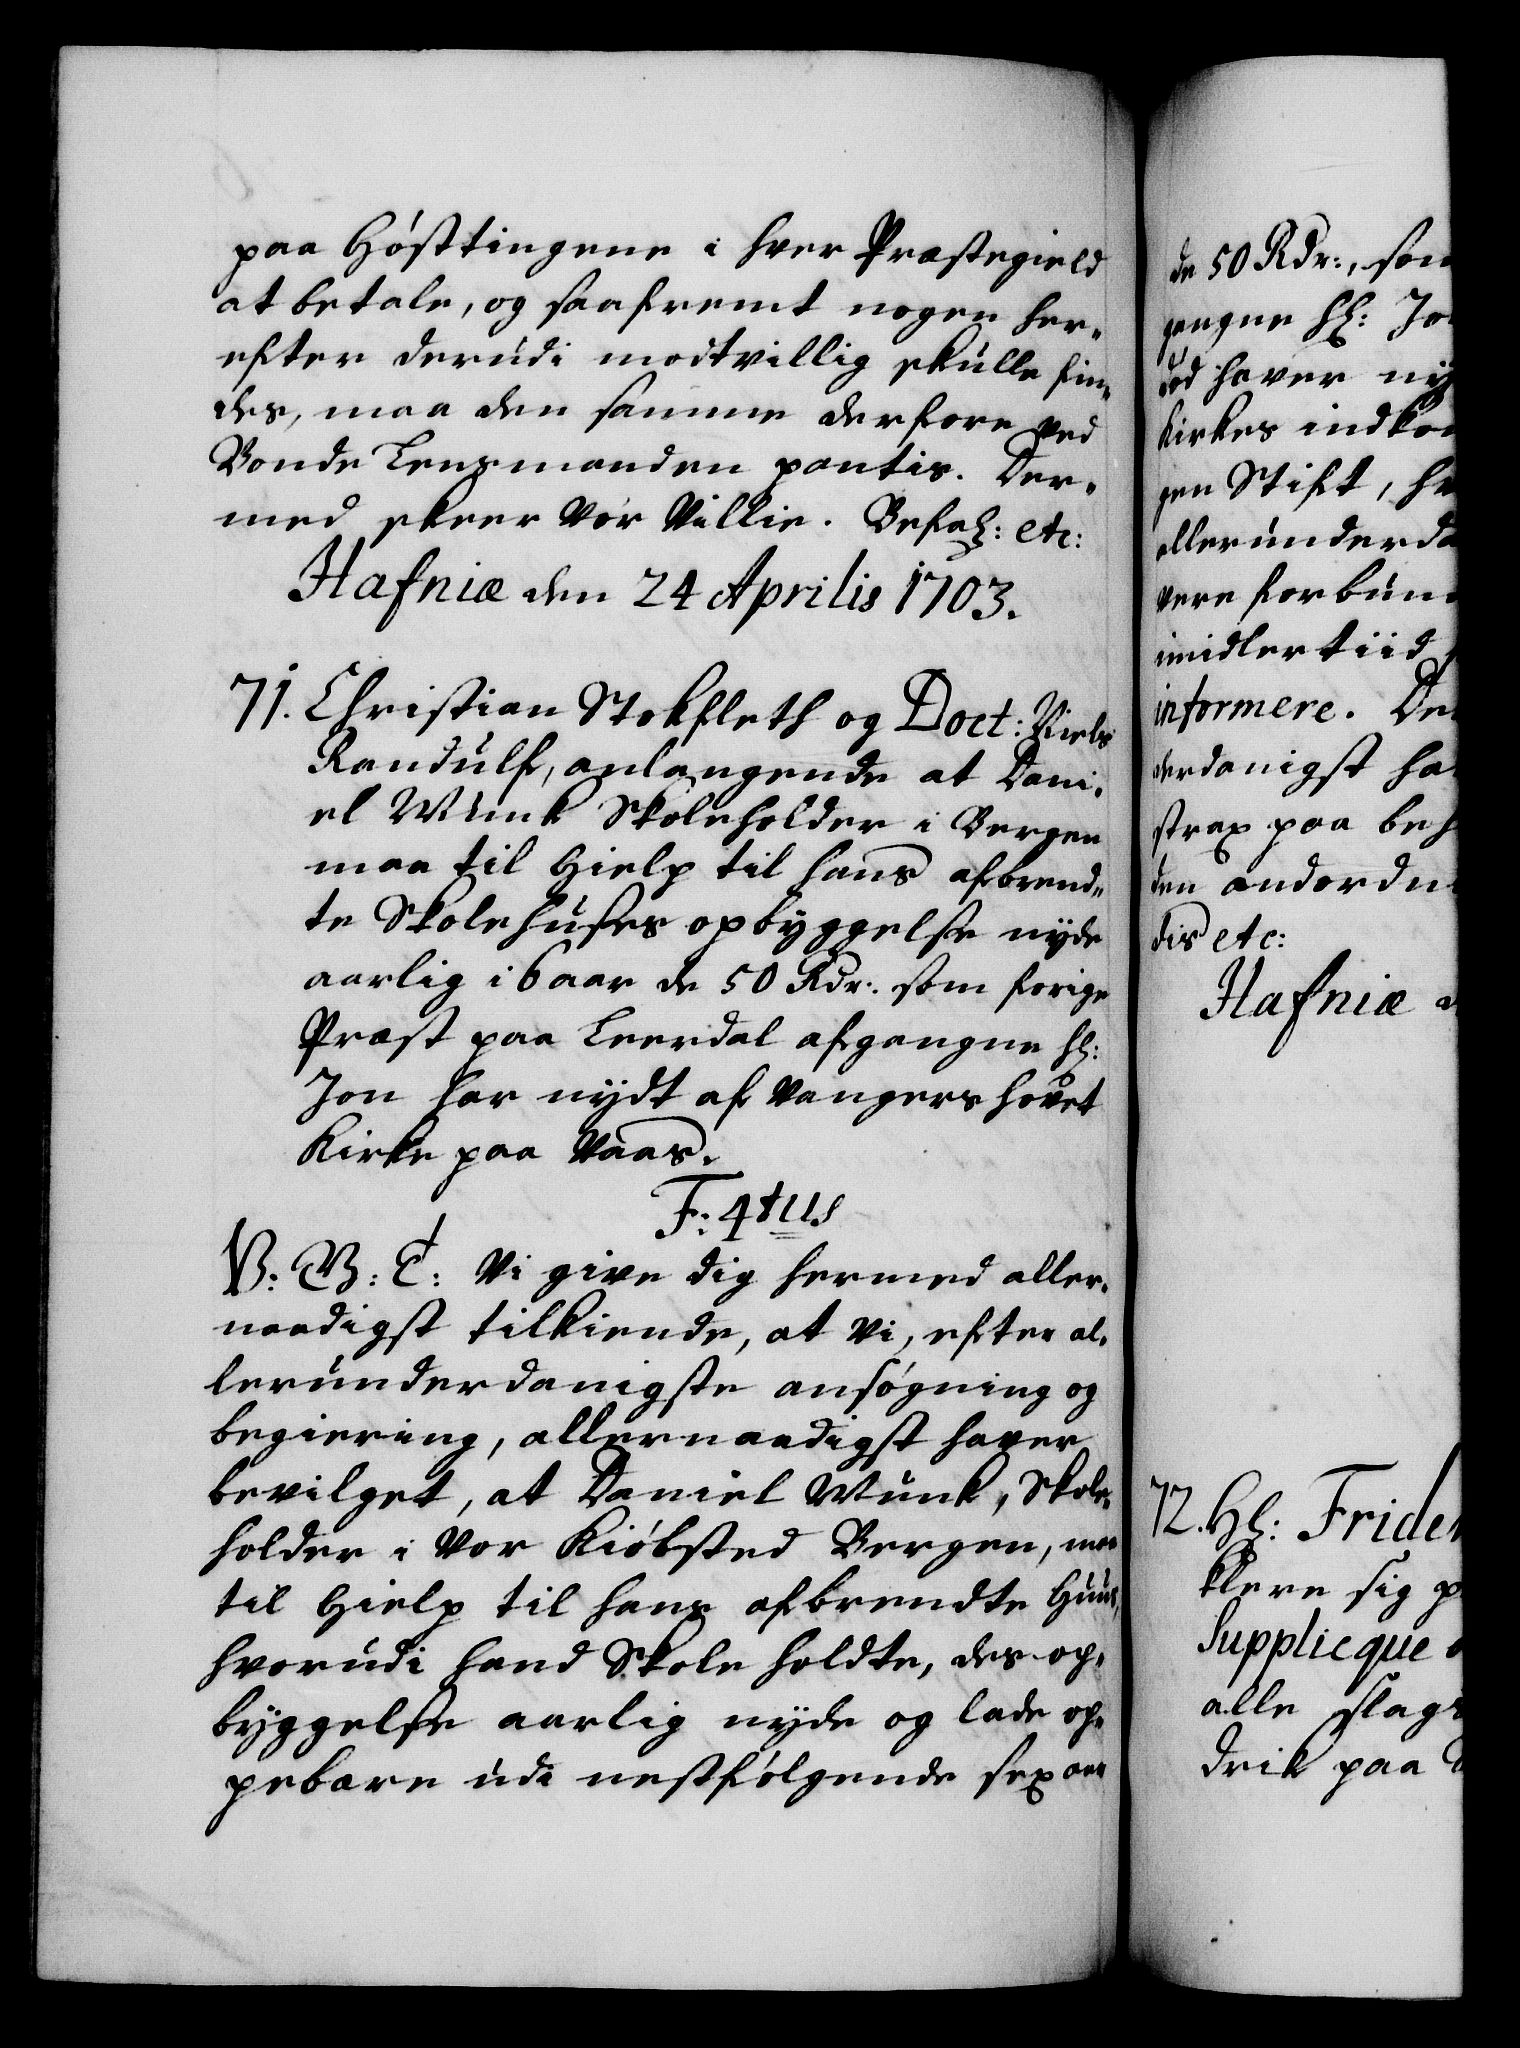 paa Høsttingene i hver Præstegield
at betale, og saafremt nogen her-
efter derudi modtvillig skulle fin-
des, maa den samme derfore ved
Bonde Lensmanden pantis. Der-
med skeer Vor Villie. Befal: etc:
Hafniæ den 24 Aprilis 1703.
71. Christian Stokfleth og Doct: Niels
Randulf, anlangende at Dani-
el Wunk Skoleholder i Bergen
maa til Hielp til hans afbrend-
te Skolehuses opbyggelse nyde
aarlig i 6 aar de 50 Rdr: som forige
Præst paa Leerdal afgangne Hl:
Jon har nydt af Vangers hovet
Kirke paa Vaas.
F: 4tus
V: G: T: Vi give dig hermed aller-
naadigst tilkiende, at Vi, efter al-
lerunderdanigste ansøgning og
begiering, allernaadigst haver
bevilget, at Daniel Wunk, Skole-
holder i Vor Kiøbsted Bergen, maa
til Hielp til hans afbrendte Huus,
hvorudi hand Skole holdte, des op-
byggelse aarlig nyde og lade op-
pebære udi nestfølgende sex aar
de 50 Rdr:, som
gangne Hl: Jo
haver ny
Kirkes indko
gen Stift, h
allerunderda
være forbun
imidlertiid
informere. De
derdanigst ha
strax paa beh
den andordn
dis etc:
Hafniæ
72. Hl: Frider
klere sig p
Supplicque
alle slags
drik paa